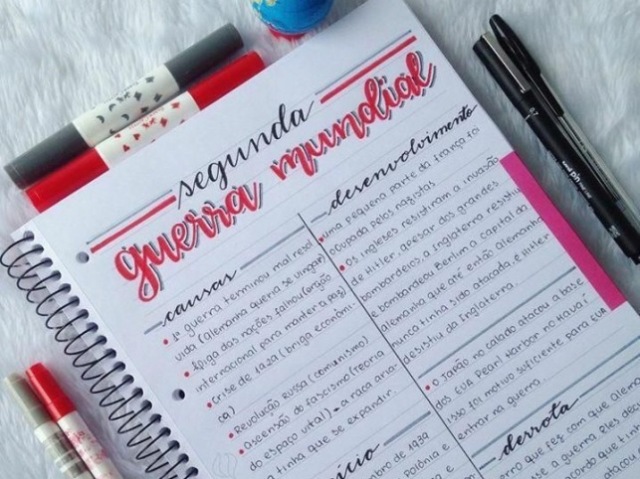 segunda
guerra mundial
causas
• 1ª guerra terminou mal resol
vida (alemanha queria se vingar)
• Liga das nações falhou (órgão
internacional para manter a paz)
• Crise de 1929 (briga econômi
ca)
• Revolução russa (comunismo)
• ascensão do fascismo (teoria
do espaço vital) → a raça ariana
tinha que se expandir
início
embro de 1939
polônia e
desenvolvimento
uma pequena parte da frança foi
ocupada pelos nazistas
• Os ingleses resistiram a invasão
de Hitler, apesar dos grandes
bombardeios, a Inglaterra resistiu
e bombardeou Berlim, a capital da
alemanha que até então alemanha
nunca tinha sido atacada, e Hitler
desistiu da Inglaterra.
• O Japão no calado atacou a base
dos EUA Pearl Harbor no Havaí,
isso foi motivo suficiente para EUA
entrar na guerra
derrota
erro que fez com que alem
sse a guerra. Eles